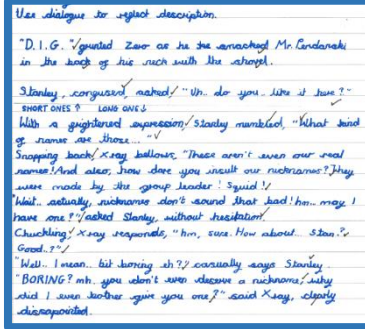 Use dialogue to replect description.
"D.I.G." grunted Zero as he smacked Mr. Pendanski
in the back of his neck with the shovel.
Stanley, congused, asked, "Uh.. do you.. like it here?"
SHORT ONES ↑ LONG ONES ↓
With a grightened expression, Stanley mumbled, "What kind
of names are those..."
Snapping back, Xray bellows, "These aren't even our real
names! And also, how dare you insult our nicknames? They
were made by the group leader! Squid!
"Wait.. actually, nicknames don't sound that bad! hm.. may I
have one?" asked Stanley, without hesitation.
Chuckling, Xray responds, "hm, sure. How about.. Stan..?
Good..?"
"Well.. I mean.. bit boring eh?", casually says Stanley.
"BORING? mh, you don't even deserve a nickname, why
did I even bother give you one," said Xray, clearly
dissapointed.